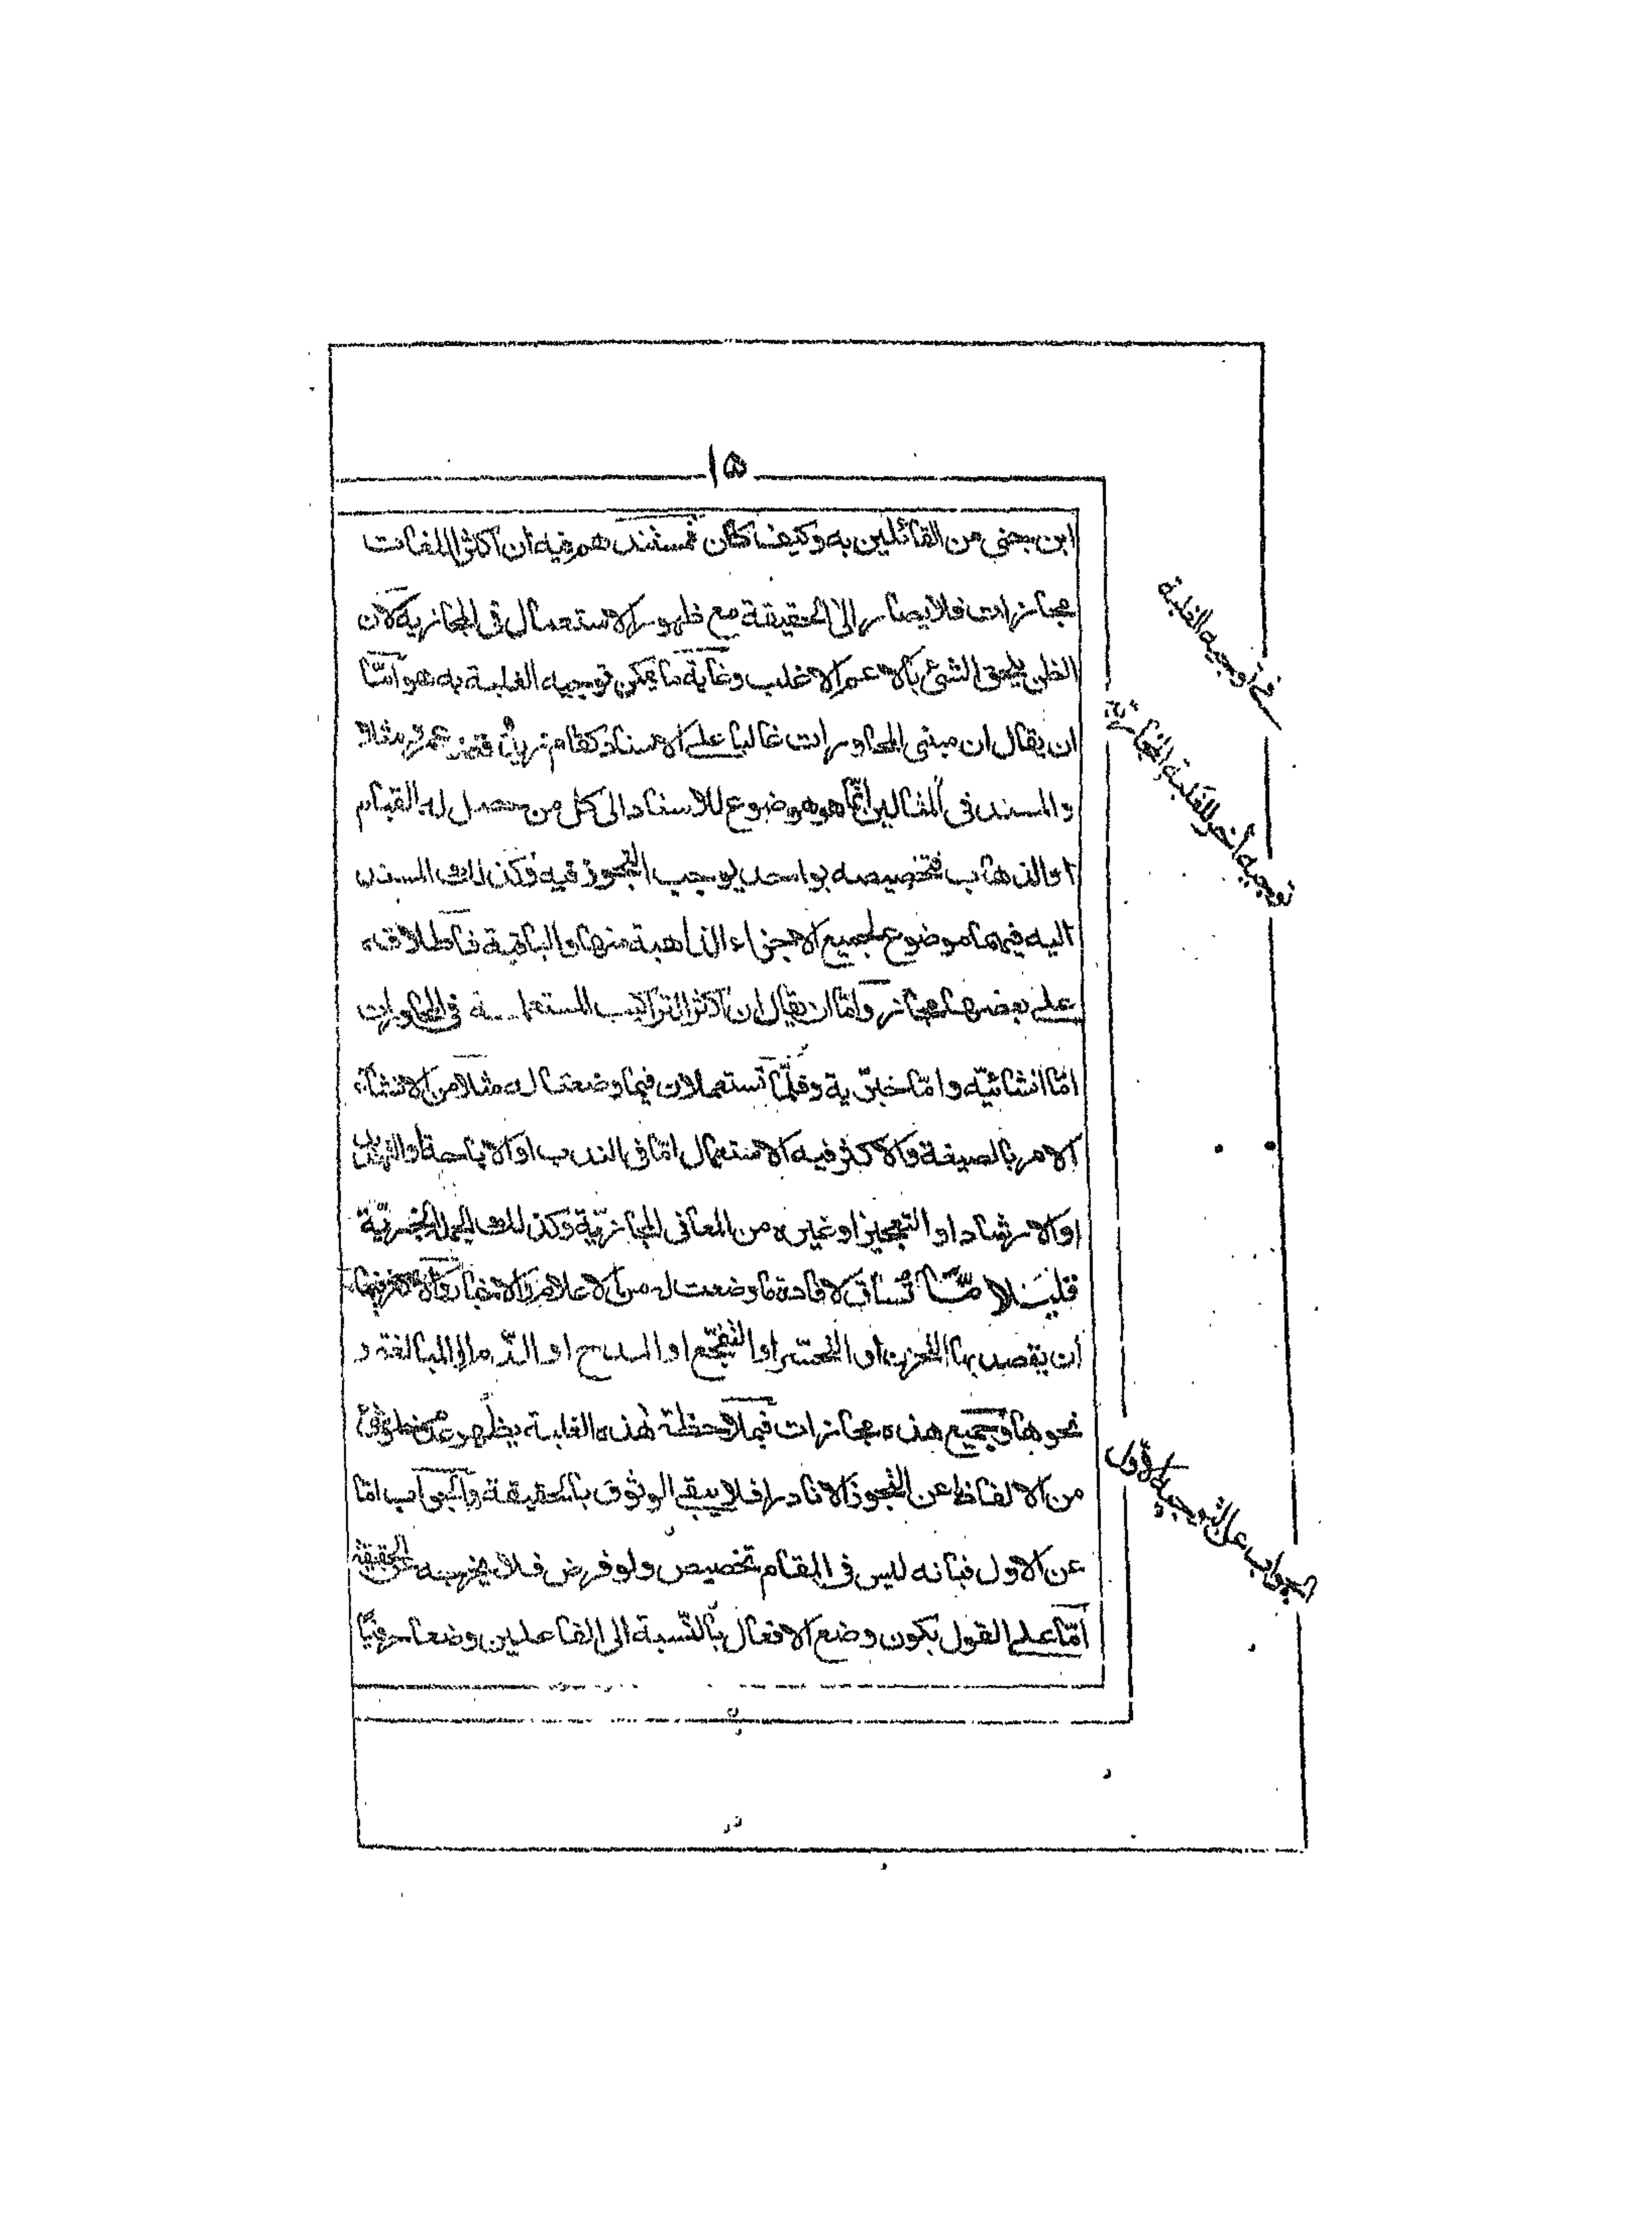 ١٥
ابن جنى من القائلين به وكيف كان فمستندهم فيه ان اكثر اللغات
مجازات فلا يصار الى الحقيقة مع ظهور الاستعمال فى المجازية لان
الظن يلحق الشئ بالاعم الاغلب وغاية ما يمكن توجيه الغلبة به هو امّا
ان يقال ان مبنى المحاورات غالبا على الاسناد كقام زيد وقعد عمرو مثلا
والمسند فى المثالين انما هو موضوع للاسناد الى كل من حصل له القيام
او الذهاب فتخصيصه بواحد يوجب التجوز فيه وكذلك المسند
اليه فيهما موضوع لجميع الاجزاء الذاهبة منها والباقية فاطلاقه
على بعضها مجاز وامّا ان يقال ان اكثر التراكيب المستعملة فى المحاورات
امّا انشائيّه وامّا خبريّة وقلّما تستعملان فيما وضعتا له مثلا من الانشاء
الامر بالصيغة والاكثر فيه الاستعمال امّا فى الندب او الاباحة او التهديد
او الارشاد او التعجيز او غيره من المعانى المجازيّة وكذلك الجملة الخبريّة
قليلا مّا تساق لافادة ما وضعت له من الاعلام والاخبار والاكثر فيها
ان يقصد بها التحزن او التحسّر او التفجّع او المدح او الذّم او المبالغة و
نحوها وجميع هذه مجازات فبملاحظة هذه الغلبة يظهر عدم خلو شئ
من الالفاظ عن التجوز الا نادرا فلا يبقى الوثوق بالحقيقة والجواب امّا
عن الاول فبانه ليس فى المقام تخصيص ولو فرض فلا يخرجه عن الحقيقة
امّا على القول بكون وضع الافعال بالنّسبة الى الفاعلين وضعا حرفيّا
فى توجيه الغلبة
توجيه آخر للغلبة
الجواب عن التوجيه الاول